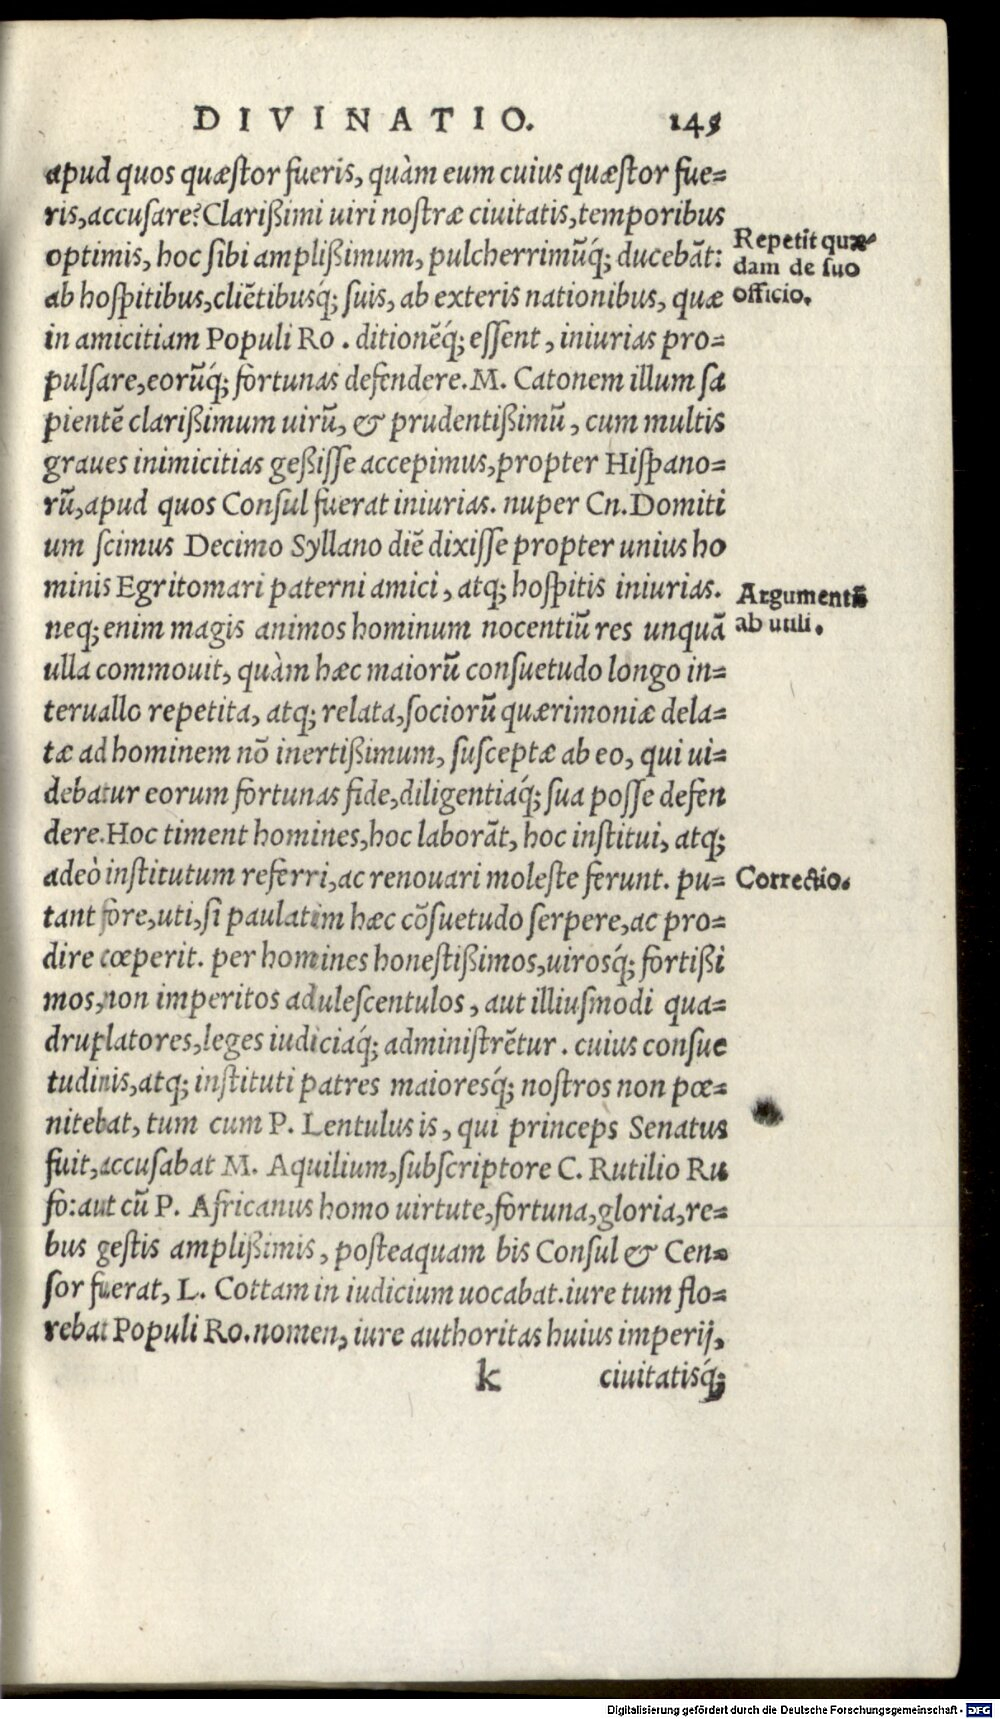 DIVINATIO. 145
apud quos quæstor fueris, quàm eum cuius quæstor fue=
ris, accusare? Clarißimi uiri nostræ ciuitatis, temporibus
optimis, hoc sibi amplißimum, pulcherrimũq́; ducebãt:
Repetit quæ-
dam de suo
officio.
ab hospitibus, cliẽtibusq; suis, ab exteris nationibus, quæ
in amicitiam Populi Ro. ditionẽq́; essent, iniurias pro=
pulsare, eorũq́; fortunas defendere. M. Catonem illum sa
pientẽ clarißimum uirũ, & prudentißimũ, cum multis
graues inimicitias geßisse accepimus, propter Hispano=
rũ, apud quos Consul fuerat iniurias. nuper Cn. Domiti
um scimus Decimo Syllano diẽ dixisse propter unius ho
minis Egritomari paterni amici, atq; hospitis iniurias.
Argumentũ
ab utili.
neq; enim magis animos hominum nocentiũ res unquã
ulla commouit, quàm hæc maiorũ consuetudo longo in=
teruallo repetita, atq; relata, sociorũ quærimoniæ dela=
tæ ad hominem nõ inertißimum, susceptæ ab eo, qui ui=
debatur eorum fortunas fide, diligentiáq; sua posse defen
dere. Hoc timent homines, hoc laborãt, hoc institui, atq;
adeò institutum referri, ac renouari moleste ferunt. pu=
Correctio.
tant fore, uti, si paulatim hæc cõsuetudo serpere, ac pro=
dire cœperit. per homines honestißimos, uirosq́; fortißi
mos, non imperitos adulescentulos, aut illiusmodi qua=
druplatores, leges iudiciaq́; administrẽtur. cuius consue
tudinis, atq; instituti patres maioresq́; nostros non pœ=
nitebat, tum cum P. Lentulus is, qui princeps Senatus
fuit, accusabat M. Aquilium, subscriptore C. Rutilio Ru
fo: aut cũ P. Africanus homo uirtute, fortuna, gloria, re=
bus gestis amplißimis, posteaquam bis Consul & Cen=
sor fuerat, L. Cottam in iudicium uocabat. iure tum flo=
rebat Populi Ro. nomen, iure authoritas huius imperij,
k ciuitatisq́;
Digitalisierung gefördert durch die Deutsche Forschungsgemeinschaft - DFG